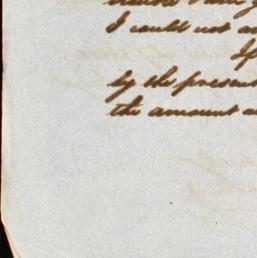 I could not a
If
by the present
the amount a